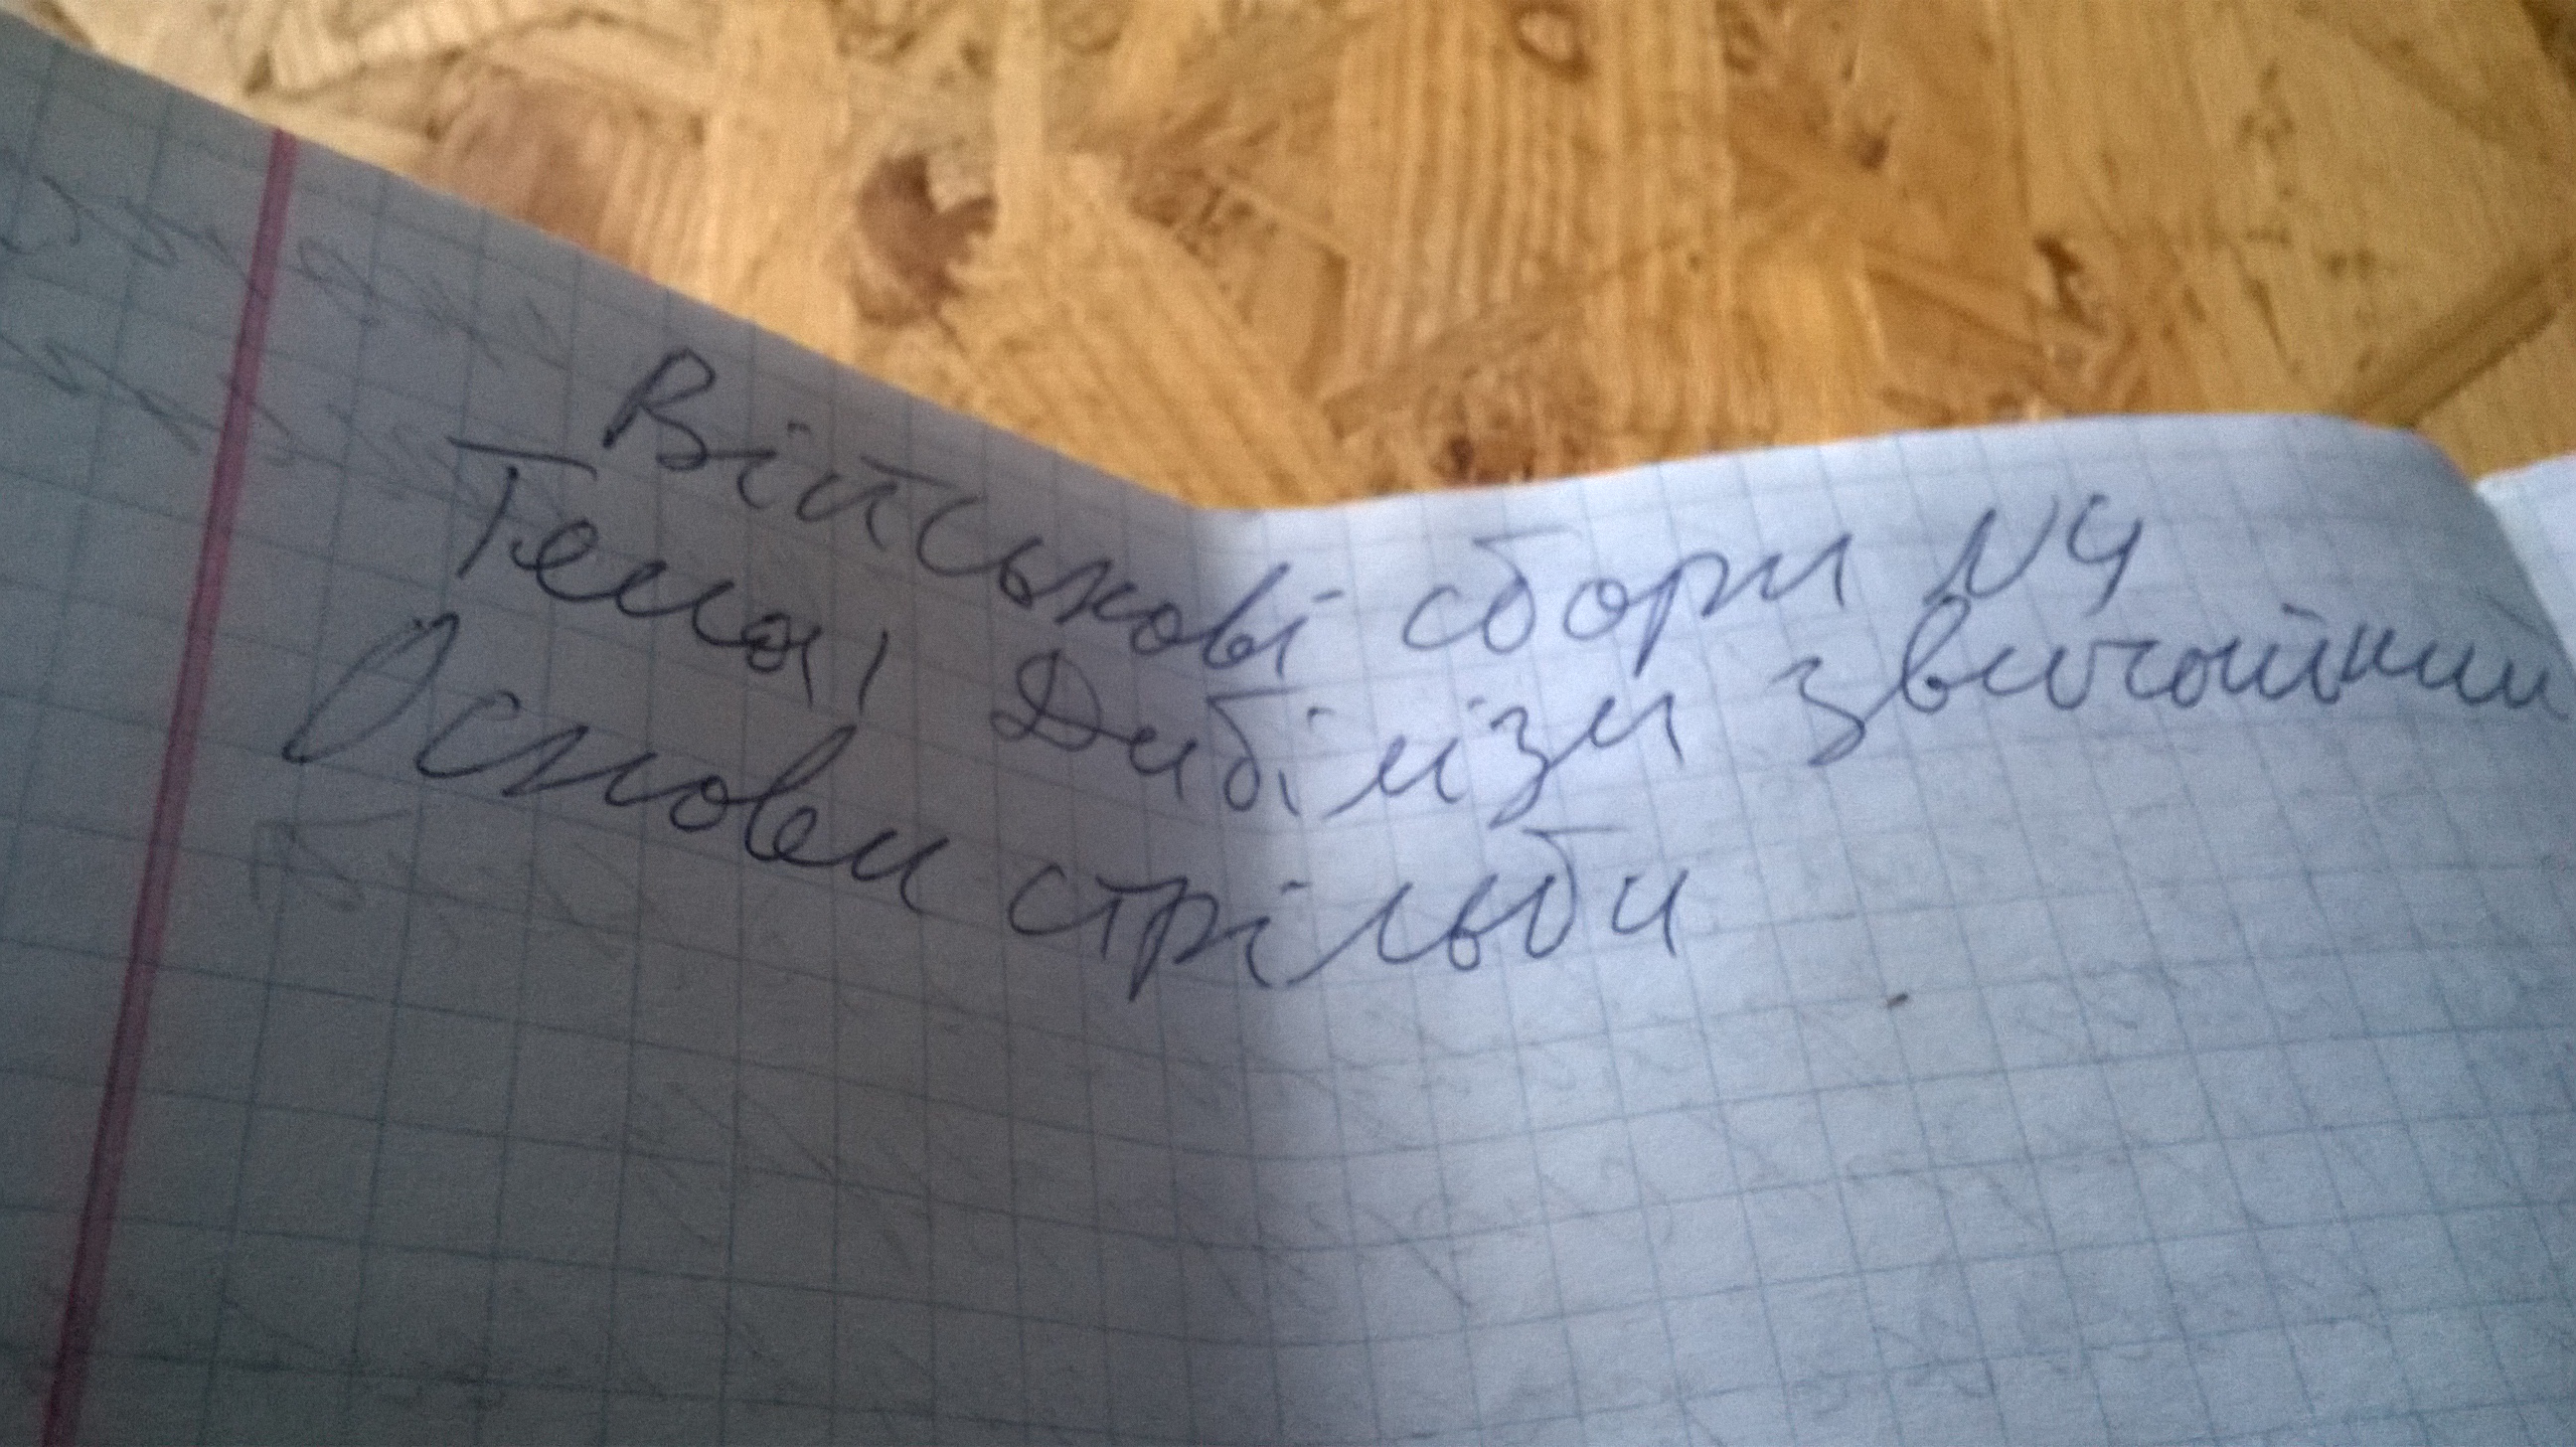 Військові сбори №4
Тема, Дибілізи звичайний
Основи стрільби